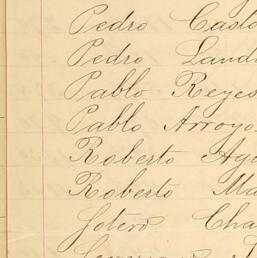 Pedro Casto
Pedro Land
Pablo Reyes
Pablo Arroyo
Roberto Agu
Roberto Ma
Sotero Cha